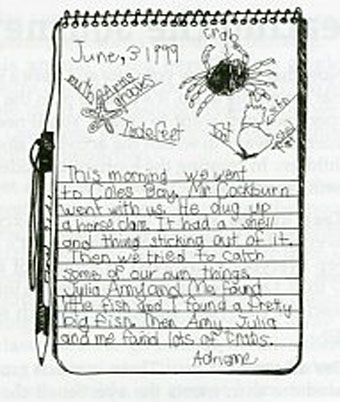 June, 3 1999
crab
Tubefeet
foot
This morning we went
to Coles Bay. Mr Cockburn
went with us. He dug up
a horse clam. It had a shell
and thing sticking out of it.
Then we tried to catch
some of our own things.
Julia Amy and Me found
little fish and I found a pretty
big fish. Then Amy, Julia
and me found lots of crabs.